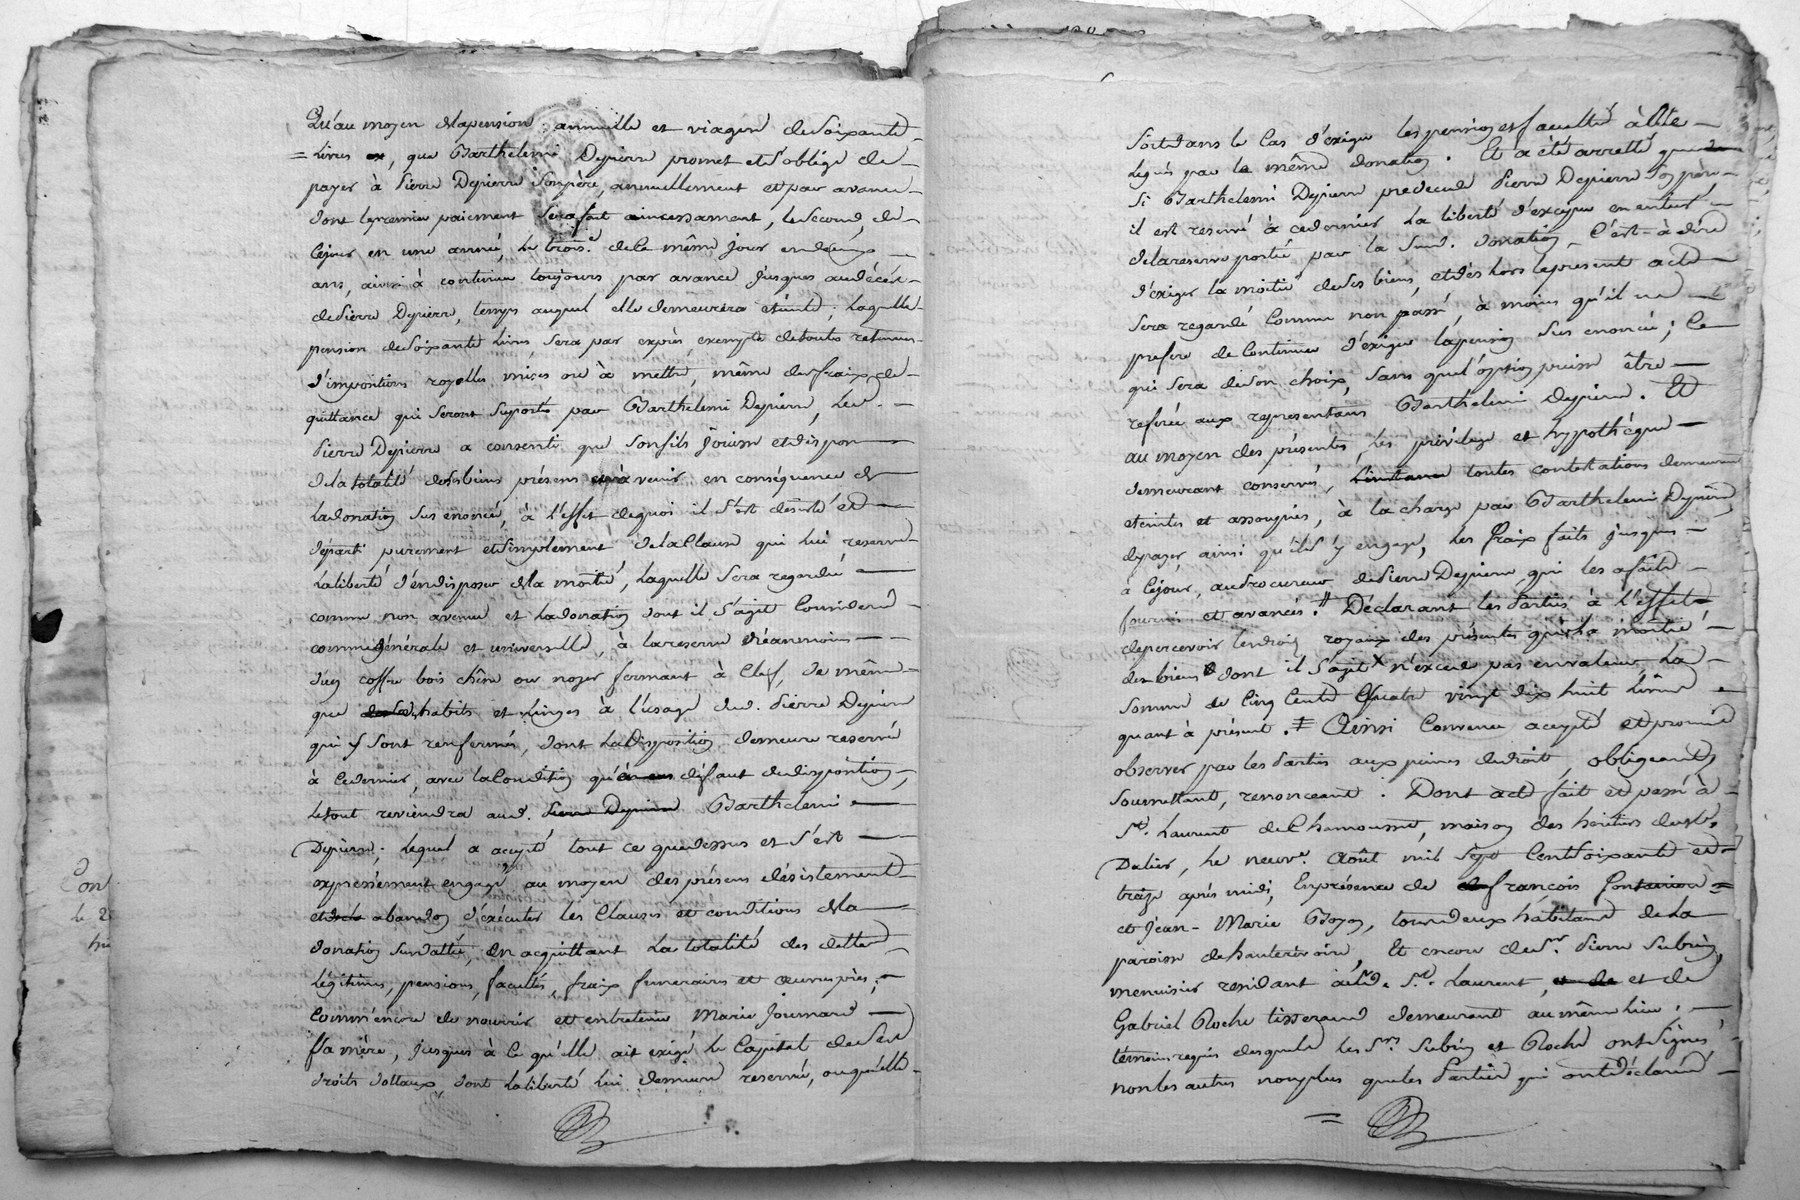 Qu'au moyen dela pension annuelle et viagere de Soixante
= Livres, que Barthelemi Depierre promet et s'oblige de
payer à Pierre Depierre Son père, annuellement et par avance
dont le premier paiement Sera fait incessament, le second, de
Cejour en une année, Le trois.e de Ce même jour en deux
ans, ainsi à continuer toujours par avance jusques au décès
de Pierre Depierre, temps auquel elle demeurera éteinte; Laquelle
pension de Soixante Livres, Sera par exprès exempte de toutes retenues
d'impositions royalles mises ou à mettre, même des fraix de
quittance qui seront Suportés par Barthelemi Depierre, Led.
Pierre Depierre a consenti que Son fils Jouisse et dispose
de la totalité de ses biens présens et à venir en conséquence de
La donation Sus énoncée, à l'effet de quoi il s'est désisté et
départi purement et Simplement de la Clause qui lui reserve
La liberté d'en disposer de la moitié, Laquelle Sera regardée
comme non avenue et La donation dont il s'agit Considerée
comme générale et universelle, à la reserve néanmoins
d'un coffre bois chêne ou noyer fermant à Clef, de même
que habits et Linges à l'usage dud. Pierre Depierre
qui y Sont renfermés, dont La disposition demeure reservée
à Ce dernier, avec la Condition qu'à défaut de disposition,
Le tout reviendra aud. Pierre Depierre Barthelemi
Depierre; Lequel a accepté tout ce que dessus et s'est
expressément engagé, au moyen des présens désistement
et abandon d'exécuter les Clauses et conditions de la
donation Susdatée, En acquittant La totalité des dettes
Légitimes, pensions, facultés, fraix funeraires et œuvres pies;
Comm'encore de nourrir et entretenir Marie Journard
Sa mère, Jusques à Ce qu'elle ait exigé Le Capital de Ses
droits dottaux dont La liberté lui demeure reservée, ou qu'elle
Soit dans le Cas d'exiger les pension et faculté à Elle
Légués par la même donation. Et a été arretté que
Si Barthelemi Depierre predecede Pierre Depierre Son père
il est reservé à ce dernier La liberté d'exciper en entier
de la reserve portée par la Susd. donation, C'est-à-dire
d'exiger la moitié de Ses biens, et dès Lors le present acte
Sera regardé Comme non passé, à moins qu'il ne
prefere de Continuer d'exiger La pension Sus enoncée; Ce
qui Sera de Son choix, Sans que l'option puisse être
referée aux representans Barthelemi Depierre. Et
au moyen des présentes, Les privilege et hypothéque
demeurant conservés, toutes contestations demeurent
eteintes et assoupies, à la charge par Barthelemi Depierre
de payer, ainsi qu'il S'y engage, Les fraix faits jusques
à Cejour, au Procureur de Pierre Depierre, qui les a faits
fournis et avancés. // Déclarant les Parties à l'effet
de percevoir les droits royaux des présentes que la moitié
des biens dont il S'agit n'excede pas en valeur La
Somme de Cinq Cents Quatre vingt dix huit Livres
quant à présent. Ainsi Convenu accepté et promis
observer par les Parties aux peines de droit, obligeant,
Soumettant, renonceant. Dont acte fait et passé à
St. Laurent de Chamousset, maison des heritiers de
Dalier, Le neuv.e Août mil Sept Cent Soixante et
treize après midi, En présence de francois fontaniere =
et Jean-Marie Boyer, tous deux habitans de La
paroisse de hauterivoire, Et encore de Sr. Pierre Subrin,
menuisier residant aud. St. Laurent, et de et de
Gabriel Roche tisserand demeurant au même Lieu,
témoins requis desquels les Srs. Subrin et Roche ont Signés
non les autres non plus que les Parties qui ont déclarés